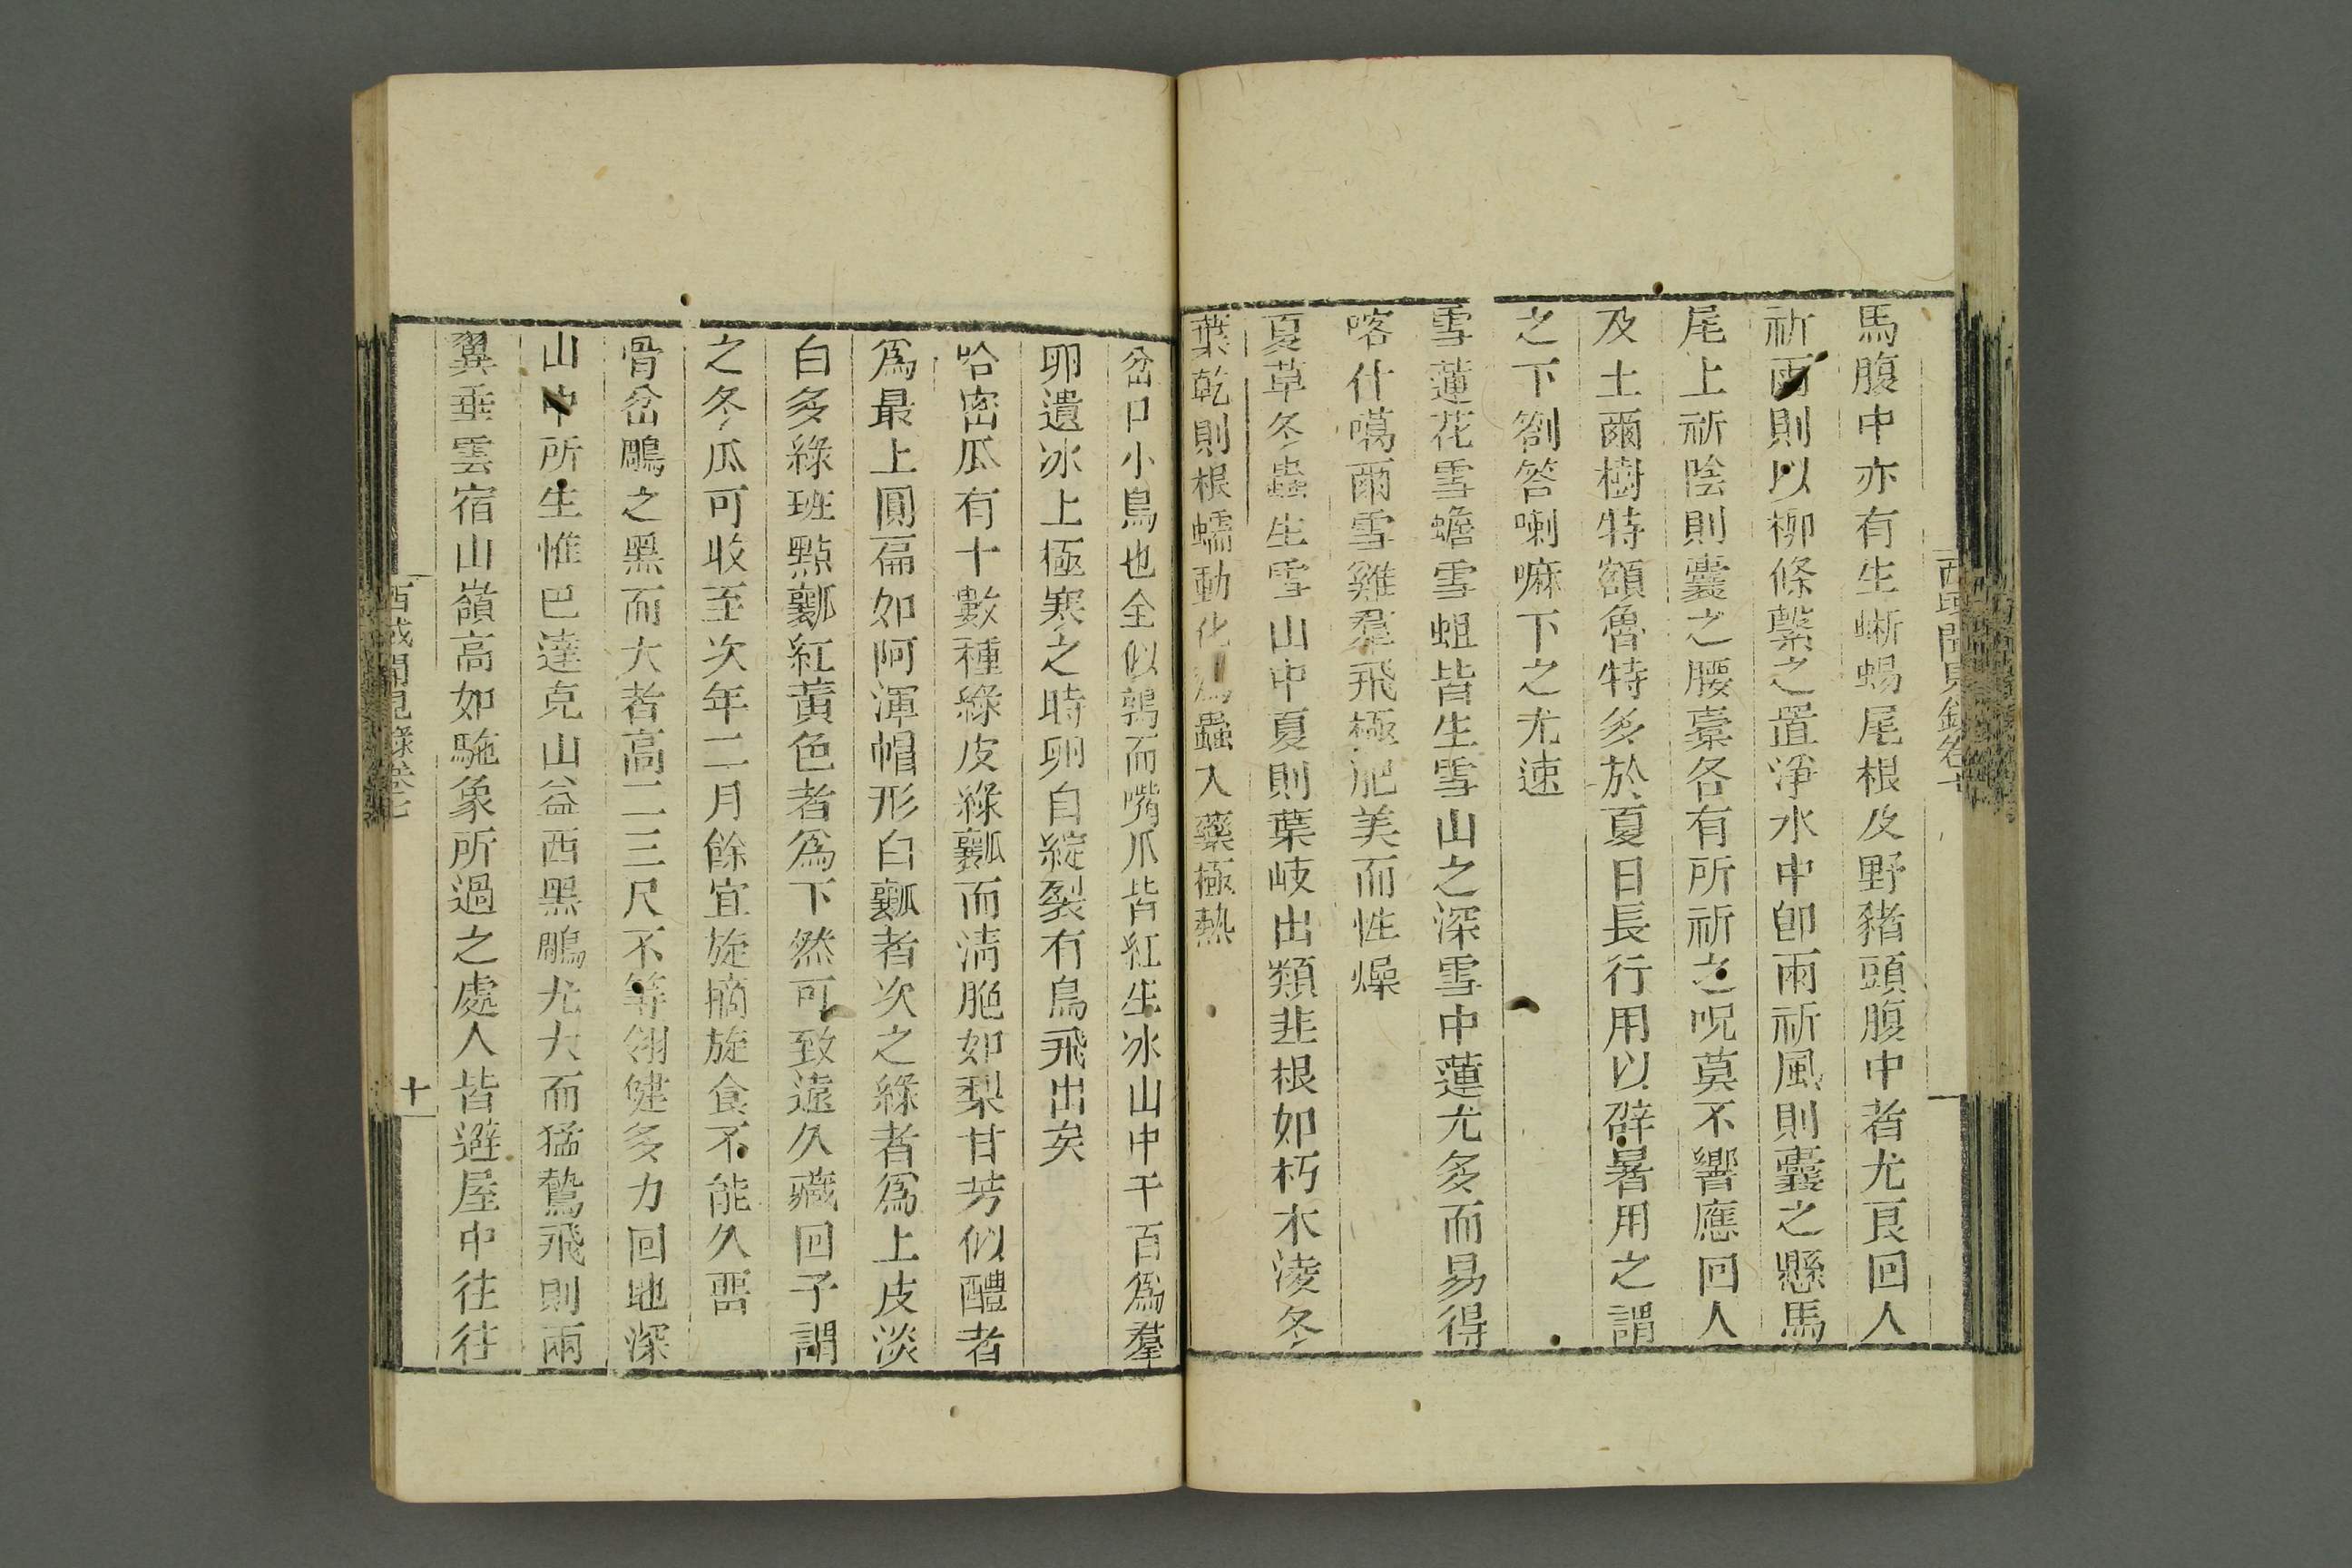 馬腹中亦有生蜥蜴尾根及野豬頭腹中者尤良回人
祈雨則以柳條繫之置淨水中卽雨祈風則囊之懸馬
尾上祈陰則囊之腰橐各有所祈之呪莫不響應回人
及土爾樹特額魯特多於夏日長行用以辟暑用之謂
之下劄答喇嘛下之尤速
雪蓮花雪蟾雪蛆皆生雪山之深雪中蓮尤多而易得
喀什噶爾雪雞羣飛極肥美而性燥
夏草冬蟲生雪山中夏則葉岐出類韭根如朽木淩冬
葉乾則根蠕動化爲蟲入藥極熱
岔口小鳥也全似鶉而嘴爪皆紅生冰山中千百爲羣
卵遺冰上極寒之時卵自綻裂有鳥飛出矣
哈密瓜有十數種綠皮綠瓤而淸脆如梨甘芳似醴者
爲最上圓扁如阿渾帽形白瓤者次之綠者爲上皮淡
白多綠班點瓤紅黃色者爲下然可致遠久藏回子謂
之冬瓜可收至次年二月餘宜旋摘旋食不能久畱
骨岔鵰之黑而大者高二三尺不等翎健多力回地深
山中所生惟巴達克山益西黑鵰尤大而猛鷙飛則兩
翼垂雲宿山嶺高如駞象所過之處人皆避屋中往往
西域聞見錄卷七
十